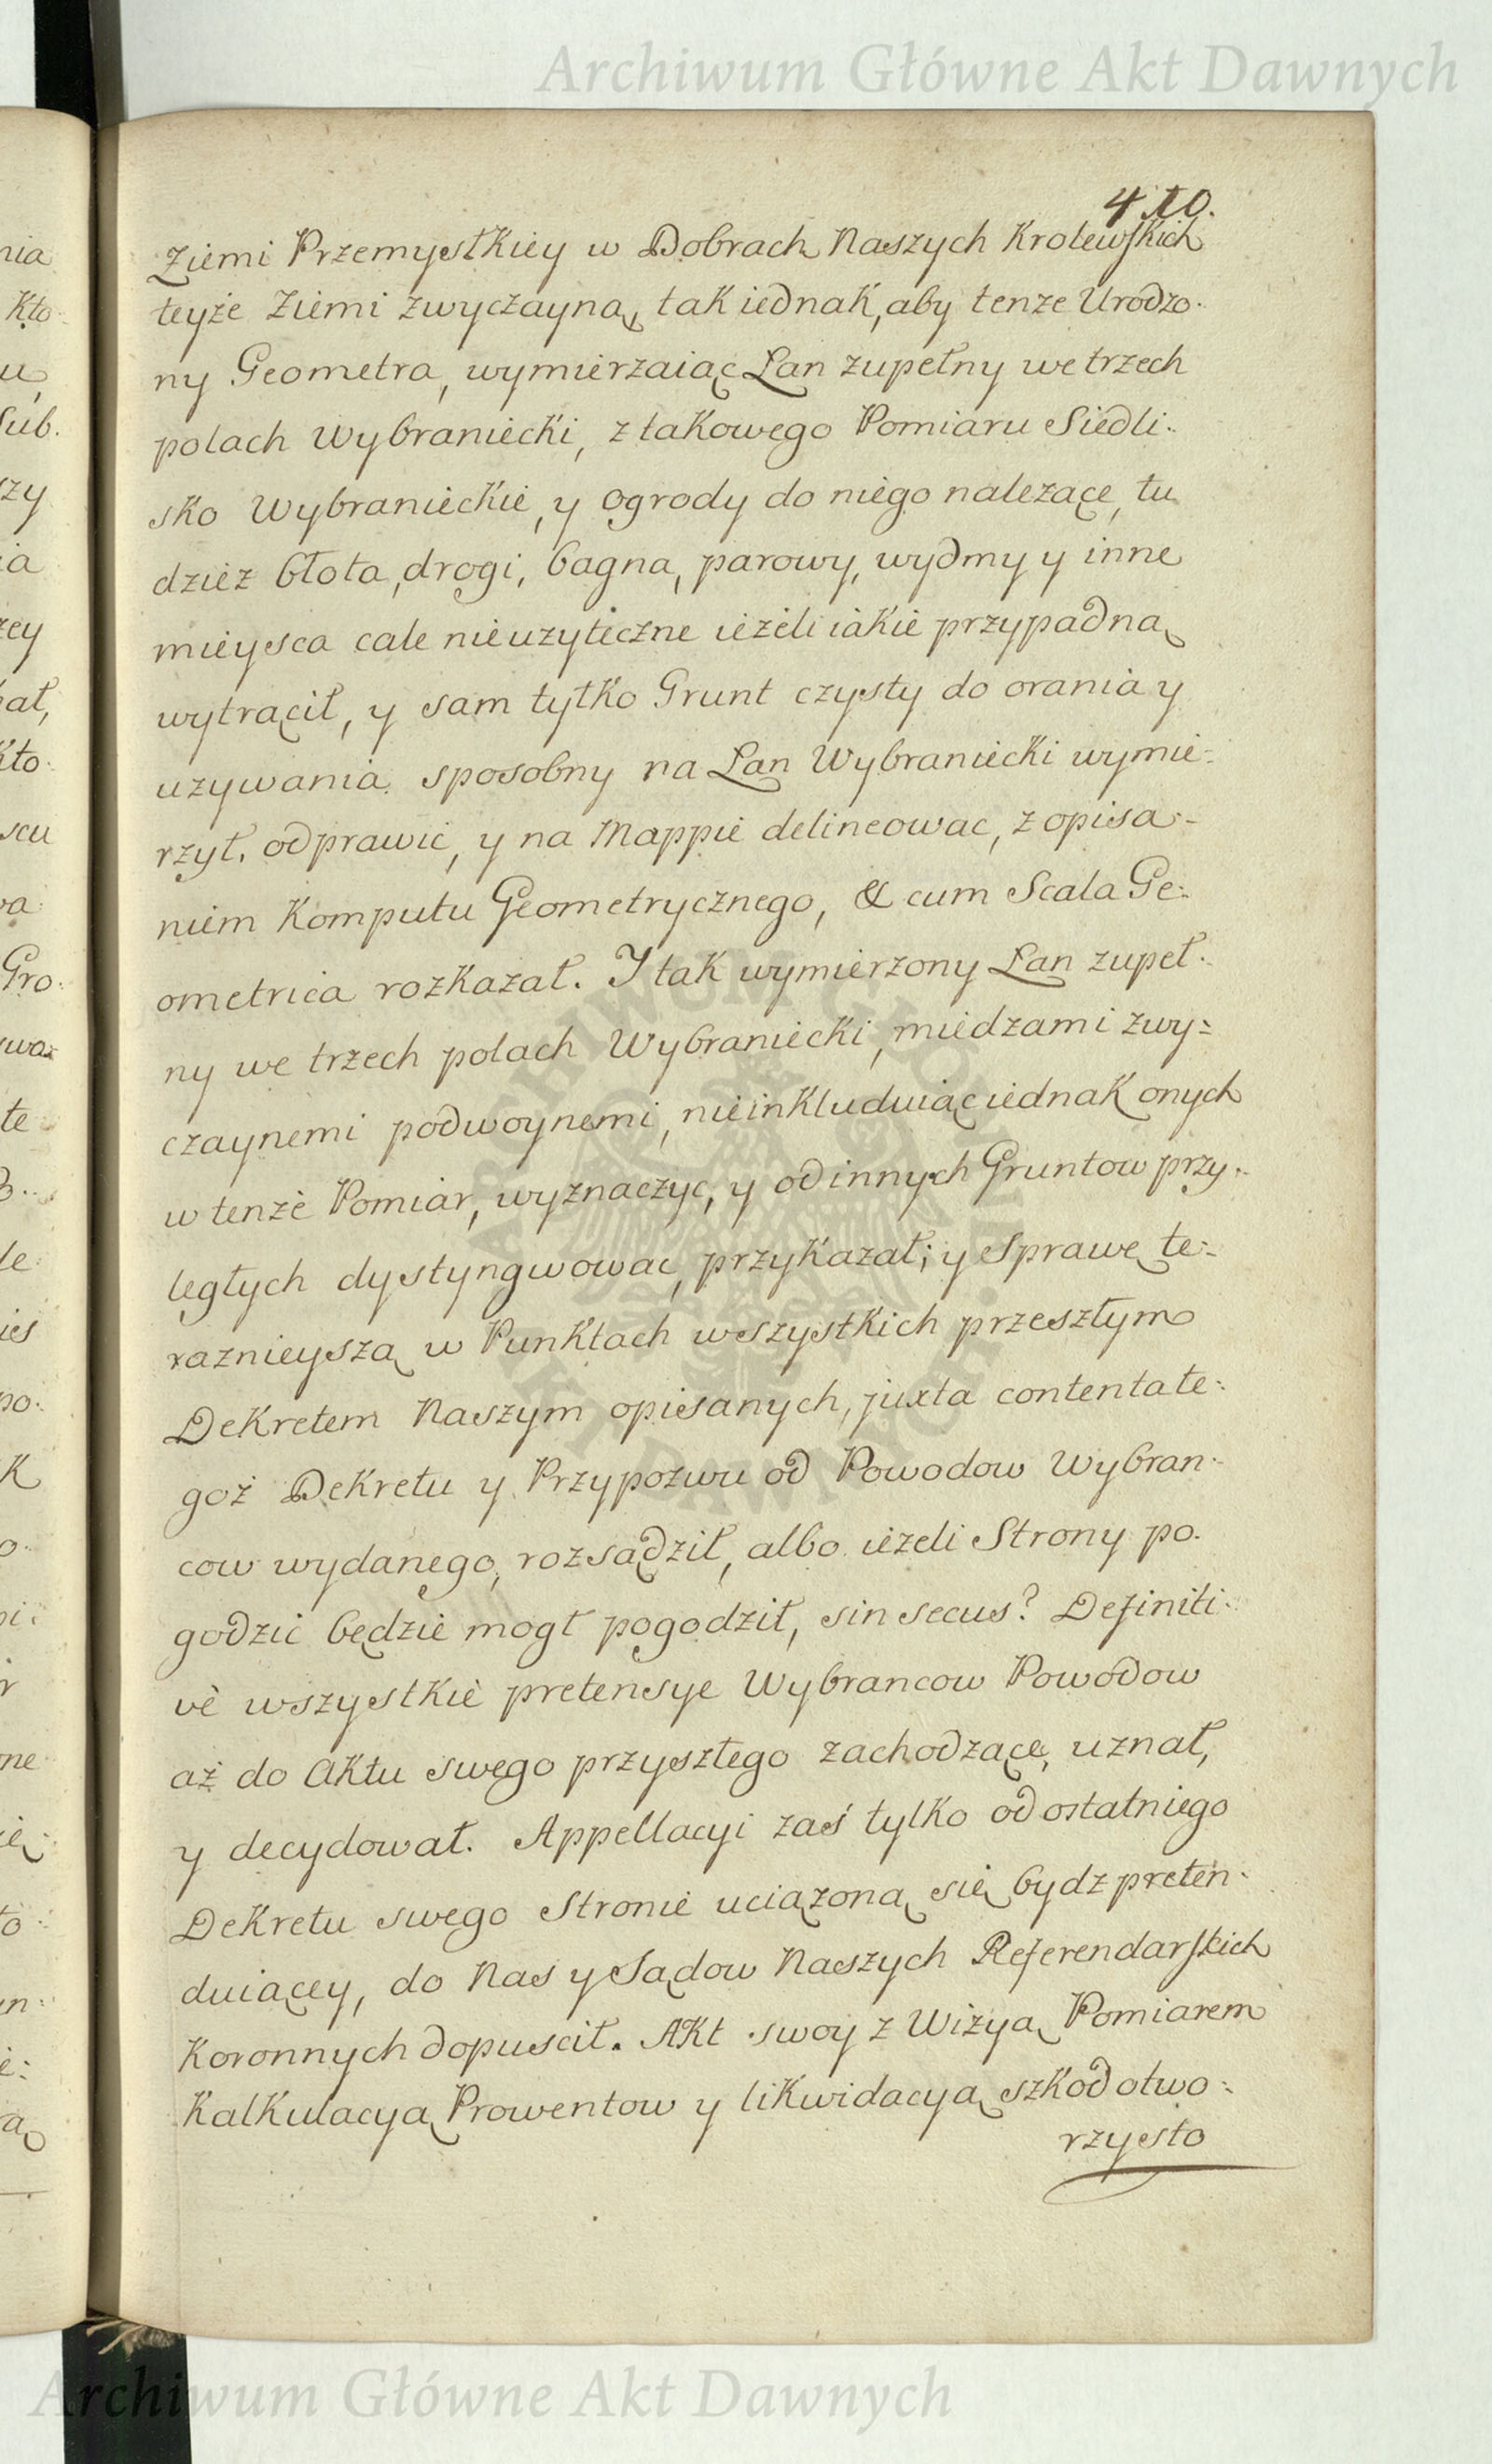 Archiwum Główne Akt Dawnych
410.
Ziemi Przemyslkiey w Dobrach Naszych Krolewskich
teyże Ziemi zwyczayną, tak iednak, aby tenze Urodzo-
ny Geometra, wymierzaiąc Łan zupełny we trzech
polach Wybraniecki, z takowego Pomiaru Siedli-
sko Wybranieckie, y Ogrody do niego nalezące, tu
dzież błota, drogi, bagna, parowy, wydmy y inne
mieysca cale nieuzyteczne ieżeli iakie przypadną
wytrącił, y sam tylko Grunt czysty do orania y
uzywania sposobny na Łan Wybraniecki wymie-
rzył. odprawic, y na Mappie delineowac, z opisa-
niem Komputu Geometrycznego, & cum Scala Ge-
ometrica rozkazał. I tak wymierzony Łan zupeł-
ny we trzech polach Wybraniecki, miedzami zwy-
czaynemi podwoynemi, nieinkluduiąc iednak onych
w tenże Pomiar, wyznaczyc, y od innych Gruntow przy-
ległych dystyngwowac, przykazał; y Sprawę te-
raznieyszą w Punktach wszystkich przeszłym
Dekretem Naszym opisanych, juxta contenta te-
goż Dekretu y Przypozwu od Powodow Wybran-
cow wydanego, rozsądził, albo ieżeli Strony po-
godzic będzie mogł pogodził, sin secus? Definiti-
vè wszystkie pretensye Wybrancow Powodow
aż do Aktu swego przyszłego zachodzące, uznał,
y decydował. Appellacyi zaś tylko od ostatniego
Dekretu swego Stronie uciązoną się bydz preten-
duiącey, do Nas y Sądow Naszych Referendarskich
Koronnych dopuscił. Akt swoy z Wizyą Pomiarem
Kalkulacyą Prowentow y likwidacyą szkod otwo-
rzysto
Archiwum Główne Akt Dawnych